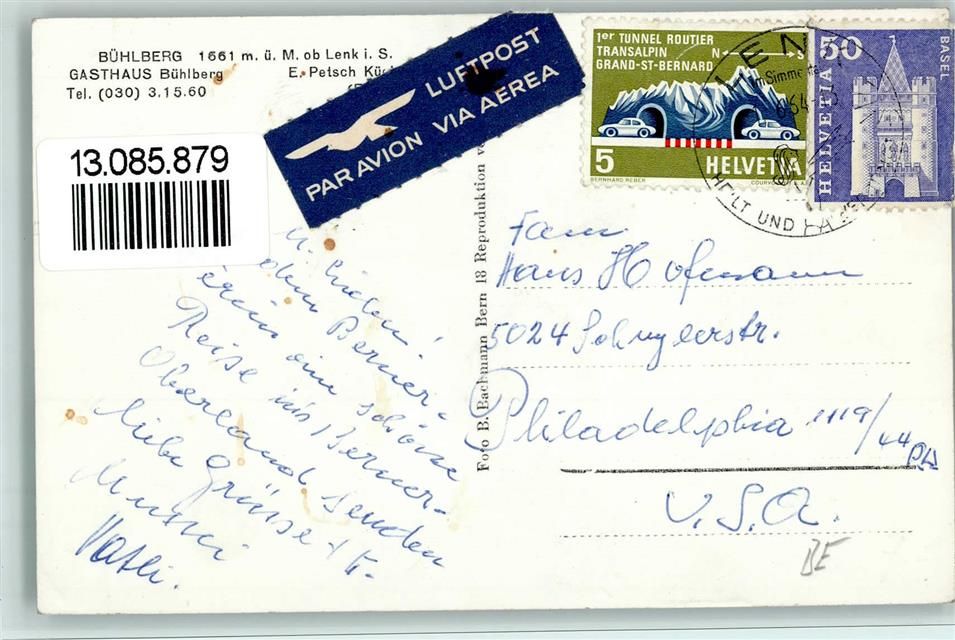 BÜHLBERG 1661 m. ü. M. ob Lenk i. S.
GASTHAUS Bühlberg E. Petsch
Tel. (030) 3.15.60
13.085.879
LUFTPOST
PAR AVION VIA AEREA
1er TUNNEL ROUTIER
TRANSALPIN N S
GRAND-ST-BERNARD
5 HELVETIA
BERNHARD REBER COURVOISIER S.A.
50
HELVETIA
BASEL
LENK
im Simmental
HEILT UND
Foto B. Bachmann Bern 18 Reproduktion
Ihr Lieben!
dem Berner-
Verein eine schöne
Reise ins Berner-
Oberland senden
liebe Grüsse
Vatti.
Fam
Hans Hofmann
5024 Schuylerstr.
Philadelphia 1119/44 PA
U.S.A.
BE